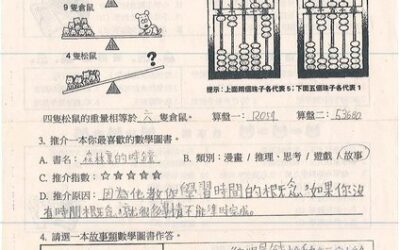 9 隻倉鼠
4 隻松鼠
?
提示：上面兩個珠子各代表 5；下面五個珠子各代表 1
四隻松鼠的重量相等於 六 隻倉鼠。 算盤一： 算盤二：53680
3. 推介一本你最喜歡的數學圖書。
A. 書名：森林裏的時鐘 B. 類別：漫畫 / 推理、思考 / 遊戲 / 故事
C. 推介指數：☆☆☆☆☆
D. 推介原因：因為他教你學習時間的概念，如果你沒
有時間概念，就很多事情不能準時完成。
4. 請選一本故事類數學圖書作答。